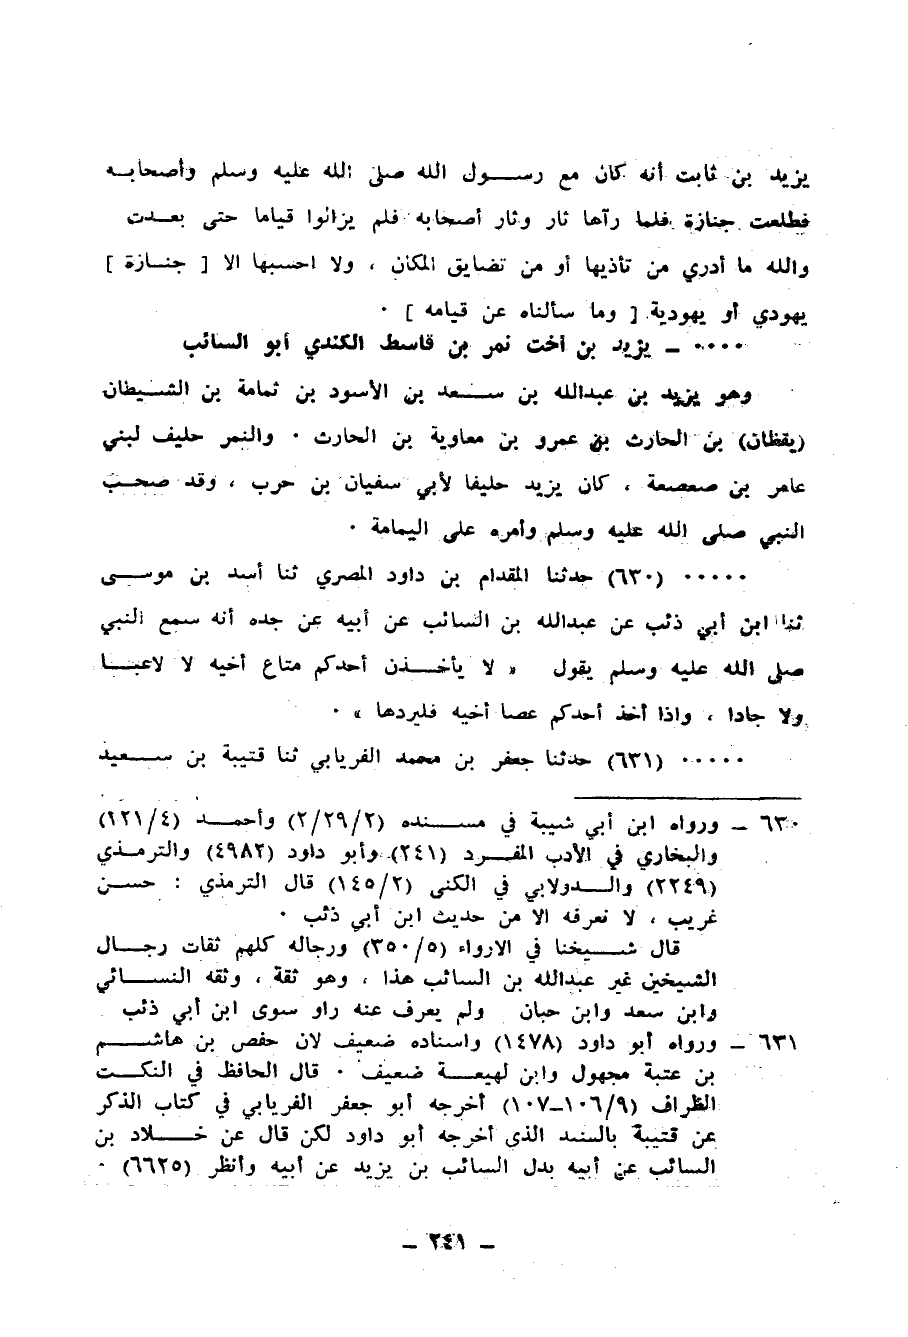 يزيد بن ثابت أنه كان مع رسول الله صلى الله عليه وسلم وأصحابه
فطلعت جنازة فلما رآها ثار وثار أصحابه فلم يزالوا قياما حتى بعدت
والله ما أدري من تأذيها أو من تضايق المكان ، ولا احسبها الا [ جنازة ]
يهودي أو يهودية [ وما سألناه عن قيامه ] ٠
٠٠٠٠ ـ يزيد بن أخت نمر بن قاسط الكندي أبو السائب
وهو يزيد بن عبدالله بن سعد بن الأسود بن ثمامة بن الشيطان
(يقظان) بن الحارث بن عمرو بن معاوية بن الحارث ٠ والنمر حليف لبني
عامر بن صعصعة ، كان يزيد حليفا لأبي سفيان بن حرب ، وقد صحب
النبي صلى الله عليه وسلم وأمره على اليمامة ٠
٠٠٠٠٠ (٦٣٠) حدثنا المقدام بن داود المصري ثنا أسد بن موسى
ثنا ابن أبي ذئب عن عبدالله بن السائب عن أبيه عن جده أنه سمع النبي
صلى الله عليه وسلم يقول « لا يأخذن أحدكم متاع أخيه لا لاعبا
ولا جادا ، واذا أخذ أحدكم عصا أخيه فليردها » ٠
٠٠٠٠٠ (٦٣١) حدثنا جعفر بن محمد الفريابي ثنا قتيبة بن سعيد
٦٣٠ ـ ورواه ابن أبي شيبة في مسنده (٢/٢٩/٢) وأحمد (١٢١/٤)
والبخاري في الأدب المفرد (٢٤١) وأبو داود (٤٩٨٢) والترمذي
(٢٢٤٩) والدولابي في الكنى (١٤٥/٢) قال الترمذي : حسن
غريب ، لا نعرفه الا من حديث ابن أبي ذئب ٠
قال شيخنا في الارواء (٣٥٠/٥) ورجاله كلهم ثقات رجال
الشيخين غير عبدالله بن السائب هذا ، وهو ثقة ، وثقه النسائي
وابن سعد وابن حبان ولم يعرف عنه راو سوى ابن أبي ذئب
٦٣١ ـ ورواه أبو داود (١٤٧٨) واسناده ضعيف لان حفص بن هاشم
بن عتبة مجهول وابن لهيعة ضعيف ٠ قال الحافظ في النكت
الظراف (١٠٦/٩ـ١٠٧) أخرجه أبو جعفر الفريابي في كتاب الذكر
عن قتيبة بالسند الذي أخرجه أبو داود لكن قال عن خلاد بن
السائب عن أبيه بدل السائب بن يزيد عن أبيه وأنظر (٦٦٢٥) ٠
ـ ٢٤١ ـ